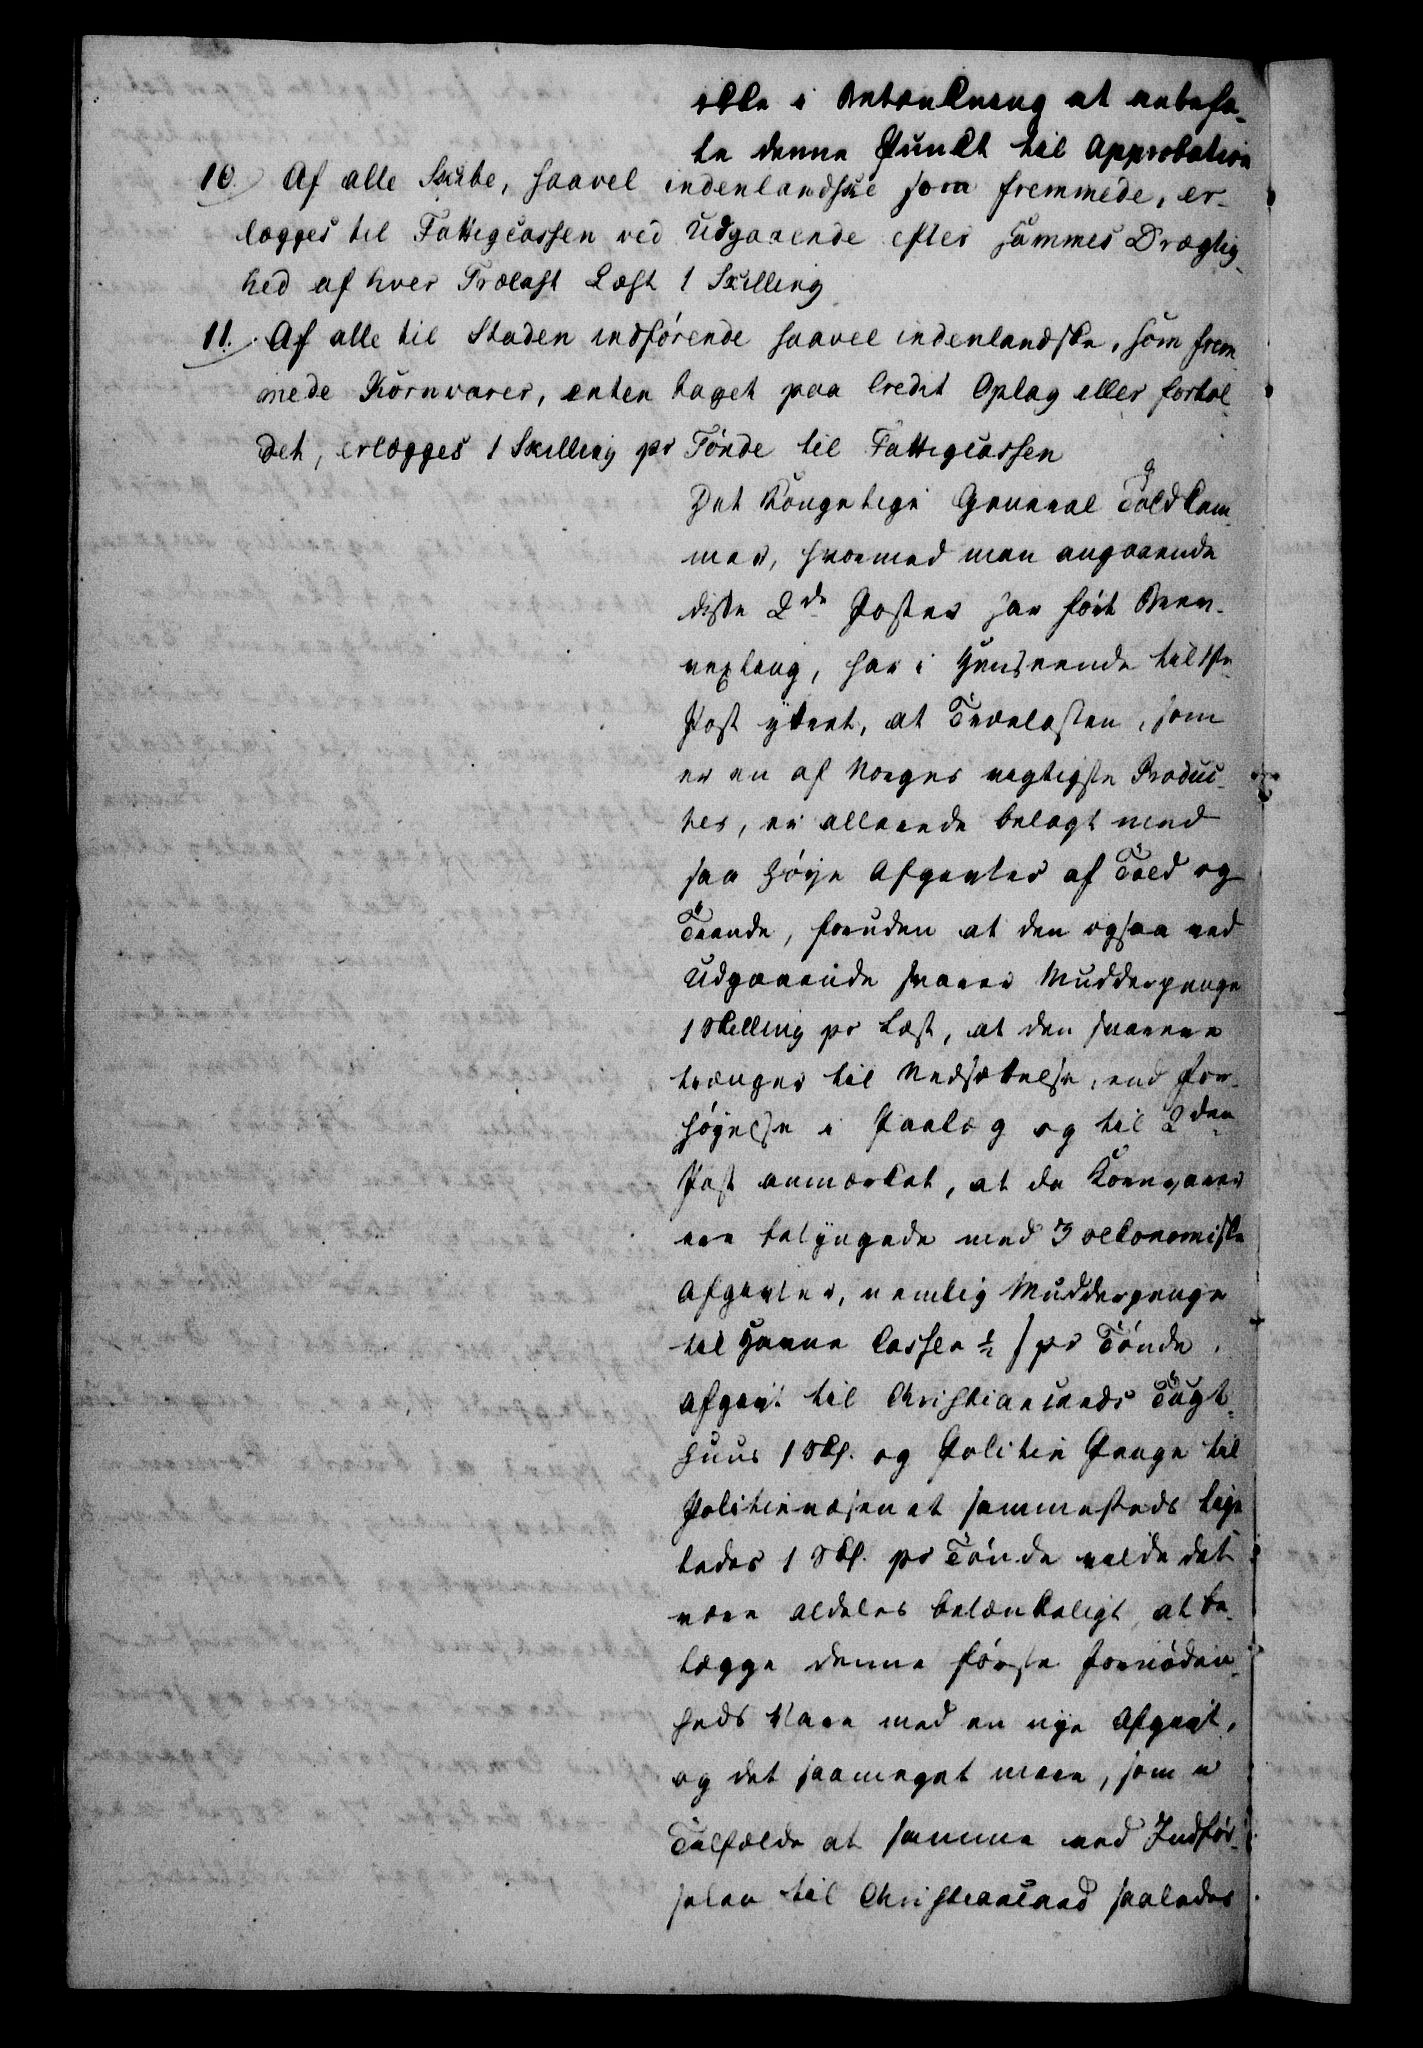 ikke i Betænkning at anbefa-
le denne Punkt til Approbation
10. Af alle Skibe, saavel indenlandske som fremmede, er-
lægges til Fattigcassen ved Udgaaende efter sammes Drægtig-
hed af hver Trælast Læst 1 Skilling
11. Af alle til Staden indførende saavel indenlandske, som frem-
mede Kornvarer, enten taget paa Credit Oplag eller fortol-
det, erlægges 1 Skilling pr Tønde til Fattigcassen
Det Kongelige General Toldkam-
mer, hvormed man angaaende
disse 2de Poster har ført Brev-
vexling, har i Henseende til 1ste
Post yttret, at Trælasten, som
er en af Norges vigtigste Produc-
ter, er allerede belagt med
saa høye Afgivter af Told og
Tiende, foruden at den ogsaa ved
Udgaaende svarer Mudderpenge
1 Skilling pr Læst, at den snarere
trænger til Nedsættelse, end For-
høyelse i Paalæg og til 2den
Post anmærket, at da Kornvarer
ere betyngede med 3 oekonomiske
Afgivter, nemlig Mudderpenge
til Havne Cassen ½ s pr Tønde,
Afgivt til Christiansands Tugt-
huus 1 Sk. og Politie Penge til
Politievæsenet sammesteds lige-
ledes 1 Sk. pr Tønde vilde det
være aldeles betænkeligt at be-
lægge denne første Fornøden-
heds Vare med en nye Afgivt,
og det saameget mere, som i
Tilfælde at samme ved Indfør-
selen til Christiansand saaledes